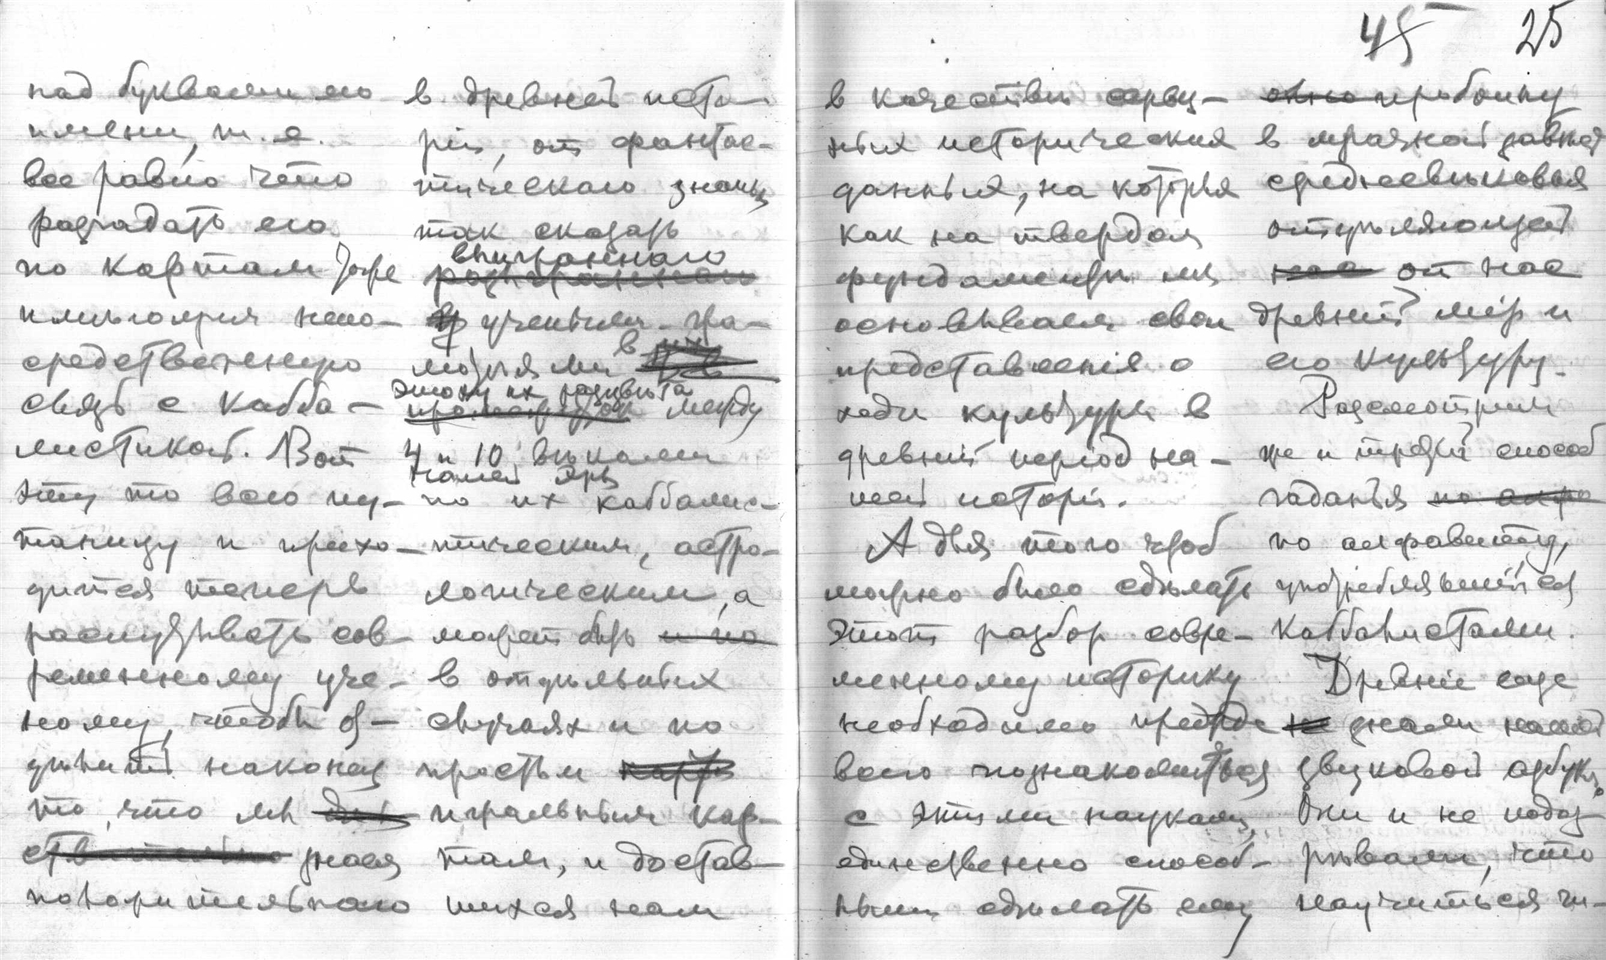 45 25
над буквами его
имени, т. е.
все равно что
разгадать его
по картам Таро
имеющия непо-
средственную
связь с Кабба-
листикой. Вот
эту то всю пу-
таницу и прихо-
дится теперь
распутывать сов-
ременному уче-
ному, чтобы от-
делить наконец
то, что мы
знаем
положительного
в древней исто-
рiи, от фантас-
тическаго знанiя
так сказать
выиграннаго
учеными гра-
мотѣями в их
эпоху их развитiя между
4 и 10 вѣками
нашей эры
по их каббалис-
тическим, астро-
логическим, а
может быть
в отдѣльных
случаях и по
простым
игральным кар-
там, и достав-
шихся нам
в качествѣ серьез-
ных исторических
данных, на которых
как на твердом
фундаментѣ мы
основываем свои
представленiя о
ходѣ культуры в
древнiй перiод на-
шей исторiи.
А для того чтоб
можно было сдѣлать
этот разбор совре-
менному историку
необходимо прежде
всего познакомиться
с этими науками,
единственно способ-
ными сдѣлать ему
пробоину
в мрачной давней
средневѣковой
отдѣляющей
от нас
древнiй мiр и
его культуру.
Разсмотрим
же и третiй способ
гаданья
по алфавиту,
употреблявшiйся
каббалистами.
Древнiе еще
не знали нашей
звуковой азбуки.
Они и не подоз-
рѣвали, что
научиться чи-